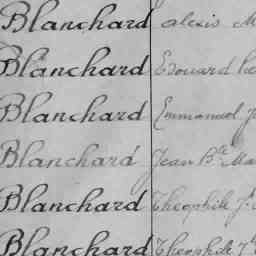 Blanchard alexis M
Blanchard Edouard
Blanchard Emmanuel J
Blanchard Jean Bte Ma
Blanchard Theophile J
Blanchard Theophile